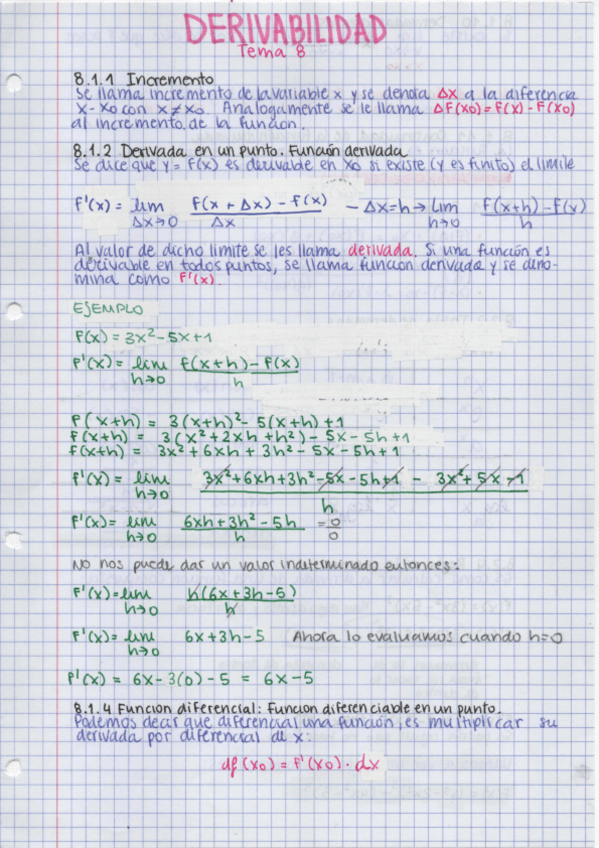 DERIVABILIDAD
Tema 8
8.1.1 Incremento
Se llama incremento de la variable x y se denota Δx a la diferencia
x-x₀ con x≠x₀. Analogamente se le llama ΔF(x₀)=F(x)-F(x₀)
al incremento de la funcion.
8.1.2 Derivada en un punto. Función derivada
Se dice que y=F(x) es derivable en x₀ si existe (y es finito) el limite
F'(x) = lim Δx→0 F(x+Δx)-F(x) / Δx - Δx=h → lim h→0 F(x+h)-F(x) / h
Al valor de dicho limite se les llama derivada. Si una función es
derivable en todos puntos, se llama funcion derivada y se deno-
mina como F'(x).
EJEMPLO
F(x) = 3x²-5x+1
F'(x) = lim h→0 F(x+h)-F(x) / h
F(x+h) = 3(x+h)²-5(x+h)+1
F(x+h) = 3(x²+2xh+h²)-5x-5h+1
F(x+h) = 3x²+6xh+3h²-5x-5h+1
F'(x) = lim h→0 3x²+6xh+3h²-5x-5h+1 - 3x²+5x-1 / h
F'(x) = lim h→0 6xh+3h²-5h / h = 0/0
No nos puede dar un valor indeterminado entonces:
F'(x) = lim h→0 h(6x+3h-5) / h
F'(x) = lim h→0 6x+3h-5 Ahora lo evaluamos cuando h=0
F'(x) = 6x-3(0)-5 = 6x-5
8.1.4 Funcion diferencial: Funcion diferenciable en un punto.
Podemos decir que diferencial una función, es multiplicar su
derivada por diferencial de x:
df(x₀) = F'(x₀)·dx